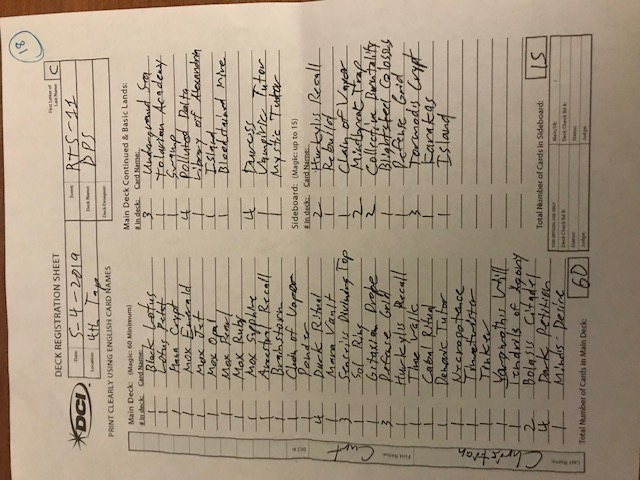 18
DECK REGISTRATION SHEET
First Letter of Last Name: C
DCI
Date: 5-4-2019
Event: RTS-11
Location: 4th Tap
Deck Name: DPS
Deck Designer:
PRINT CLEARLY USING ENGLISH CARD NAMES
Main Deck: (Magic: 60 Minimum)
# in deck: Card Name:
1 Black Lotus
1 Lotus Petal
1 Mana Crypt
1 Mox Emerald
1 Mox Jet
1 Mox Opal
1 Mox Pearl
1 Mox Ruby
1 Mox Sapphire
1 Ancestral Recall
1 Brainstorm
1 Chain of Vapor
1 Ponder
4 Dark Ritual
1 Mana Vault
3 Senseiis Divining Top
1 Sol Ring
1 Gitaxian Probe
3 Defense Grid
1 Hurkylis Recall
1 Time Walk
1 Cabal Ritual
1 Demonic Tutor
1 Necropotence
1 Timetwister
1 Tinker
1 Yawgmoths Will
1 Tendrils of Agony
2 Bolasis Citadel
4 Dark Petition
1 Minds Desire
Total Number of Cards in Main Deck: 60
Main Deck Continued & Basic Lands:
# in deck: Card Name:
3 Underground Sea
1 Tolarian Academy
1 Swamp
4 Polluted Delta
1 Library of Alexandria
1 Island
1 Bloodstained Mire
4 Duress
1 Vampiric Tutor
1 Mystic Tutor
Sideboard: (Magic: up to 15)
# in deck: Card Name:
2 Hurkylis Recall
1 Rebuild
1 Chain of Vapor
2 Mindbreak Trap
2 Collective Brutality
1 Blightsteel Colossus
1 Defense Grid
3 Tormodis Crypt
1 Karakas
1 Island
Total Number of Cards in Sideboard: 15
FOR OFFICIAL USE ONLY
Deck Check Rd #:
Status:
Judge:
Main/SB:
Deck Check Rd #:
Status:
Judge:
Last Name: Christian
First Name: Curt
DCI #: